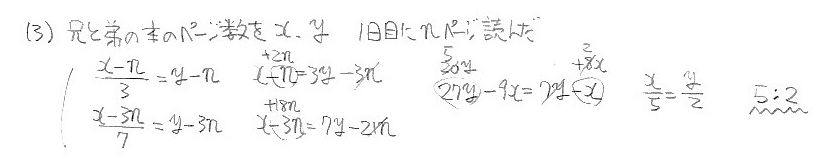 (3) 兄と弟の本のページ数を x、y 1日目に n ページ読んだ
(x-n)/3 = y-n +2n x-n=3y-3n 5 20y 27y-9x=7y-x 2 +8x x/5=y/2 5:2
(x-3n)/7 = y-3n +18n x-3n=7y-21n